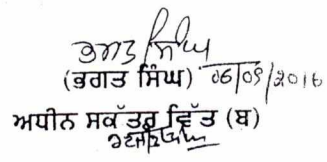 ਭਗਤ ਸਿੰਘ
(ਭਗਤ ਸਿੰਘ) 06/09/2016
ਅਧੀਨ ਸਕੱਤਰ ਵਿੱਤ (ਬ)